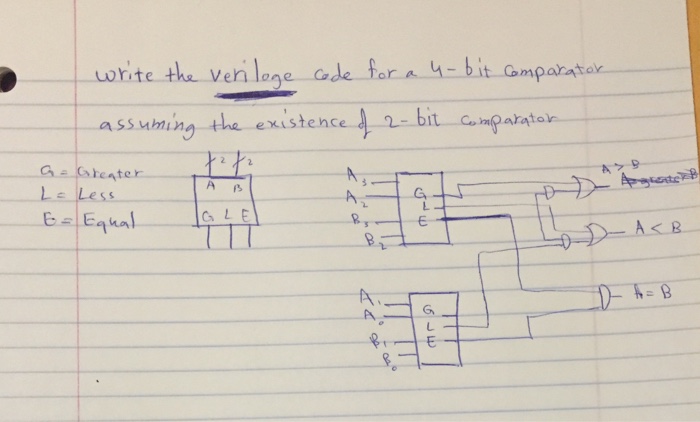 write the veriloge code for a 4-bit comparator
assuming the existence of 2-bit comparator
G = Greater
L = Less
E = Equal
2 2
A B
G L E
A3
A2
B3
B2
G
L
E
A > B
A < B
A = B
A1
A0
B1
B0
G
L
E